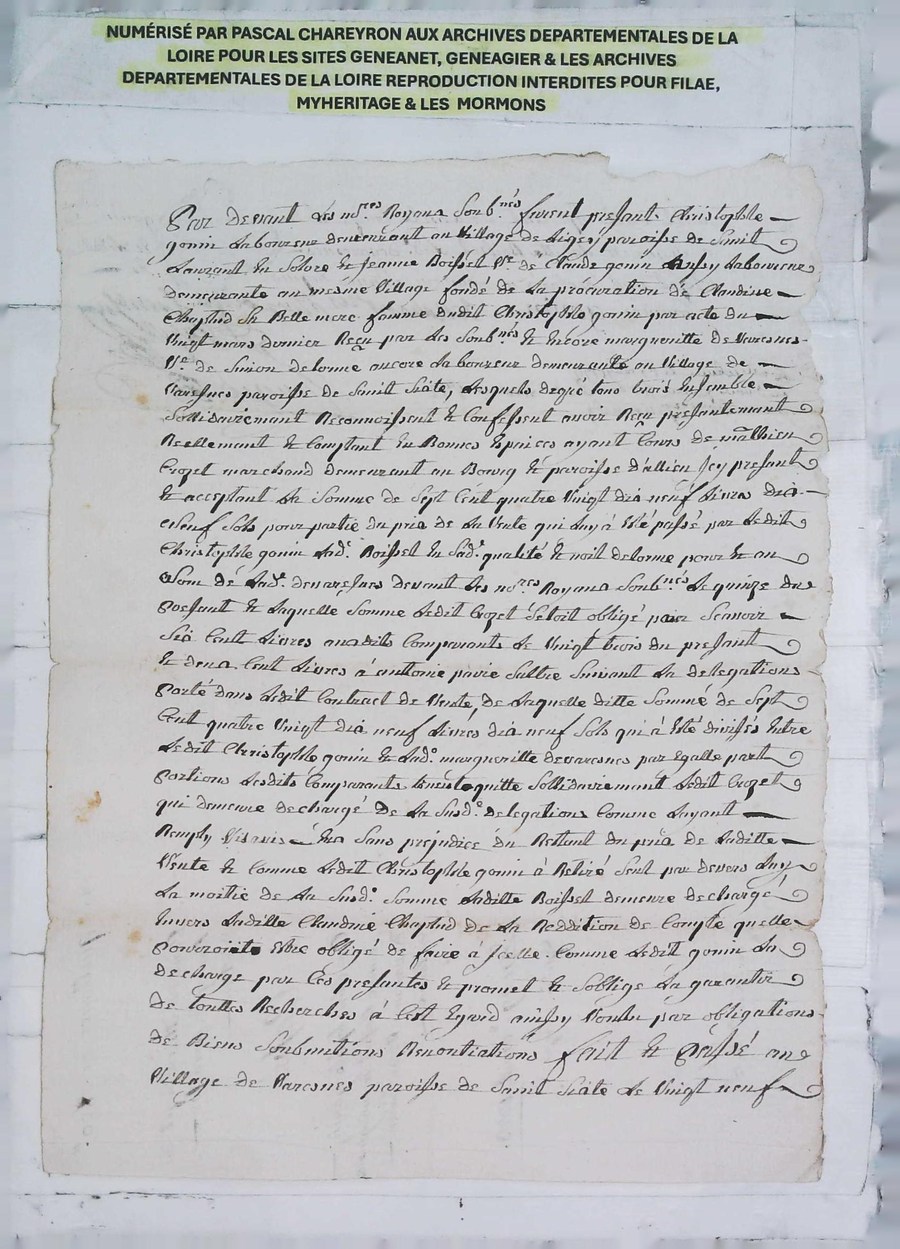 NUMÉRISÉ PAR PASCAL CHAREYRON AUX ARCHIVES DEPARTEMENTALES DE LA
LOIRE POUR LES SITES GENEANET, GENEAGIER & LES ARCHIVES
DEPARTEMENTALES DE LA LOIRE REPRODUCTION INTERDITES POUR FILAE,
MYHERITAGE & LES MORMONS
Par devant les nores Royaux soubnés furent presant Christophle
gonin laboureur demeurant au village de paroisse de saint
Laurant En Solore Et Jeanne Boisset Ve de Claude gonin aussy laboureur
demeurante au mesme village fondé de la procuration de Claudine
Chaptud sa Belle mere femme dudit Christophle gonin par acte du
vingt mars dernier Reçu par les soubnés Et Encore margueritte de Varesnes
Ve de Simon delorme ancore laboureur demeurante au village de
Varesnes paroisse de saint Sixte, lesquels degré tous trois Ensemble
sollidairemant Reconnoissent Et Confessent avoir Reçu presantemant
Reellemant Et Comptant En Bonnes Espaices ayant Cours de mathieu
Crozet marchand demeurant au Bourg Et paroisse d'allieu Jcy presant
Et acceptant la somme de sept Cent quatre vingt dix neuf livres dix
neuf sols pour partie du prix de la vente qui luy à Esté passé par ledit
Christophle gonin lade Boisset En sade qualité Et delorme pour Et au
nom de lade devaresnes devant les nores Royaux soubnés le quinze du
presant Et laquelle somme ledit Crozet s'Estoit obligé paier scavoir
six Cent livres auxdits Comparants le vingt trois du presant
Et deux Cent livres à anttoine suivant la dellegations
porté dans ledit Contract de vente, de laquelle ditte somme de sept
Cent quatre vingt dix neuf livres dix neuf sols qui à Esté divisés Entre
ledit Christophle gonin Et lade margueritte devaresnes par Egalle part
portions lesdits Comparants quitte sollidairemant ledit Crozet
qui demeure dechargé de la susde delegations Comme layant
Remply sans prejudice du Restant du prix de laditte
vente Et Comme ledit Christophle gonin à Retiré seul par devers luy
la moitie de la susde somme laditte Boisset demeure dechargé
Envers laditte Claudine Chaptud de la Reddition de Compte quelle
pourroit Estre obligé de faire à Jcelle Comme ledit gonin la
decharge par Ces presantes Et promet Et soblige la garantir
de touttes Recherches à Cest Egard ainssy voulu par obligations
de Biens soubmitions Renontiations fait Et passé au
village de Varesnes paroisse de saint Sixte le vingt neuf